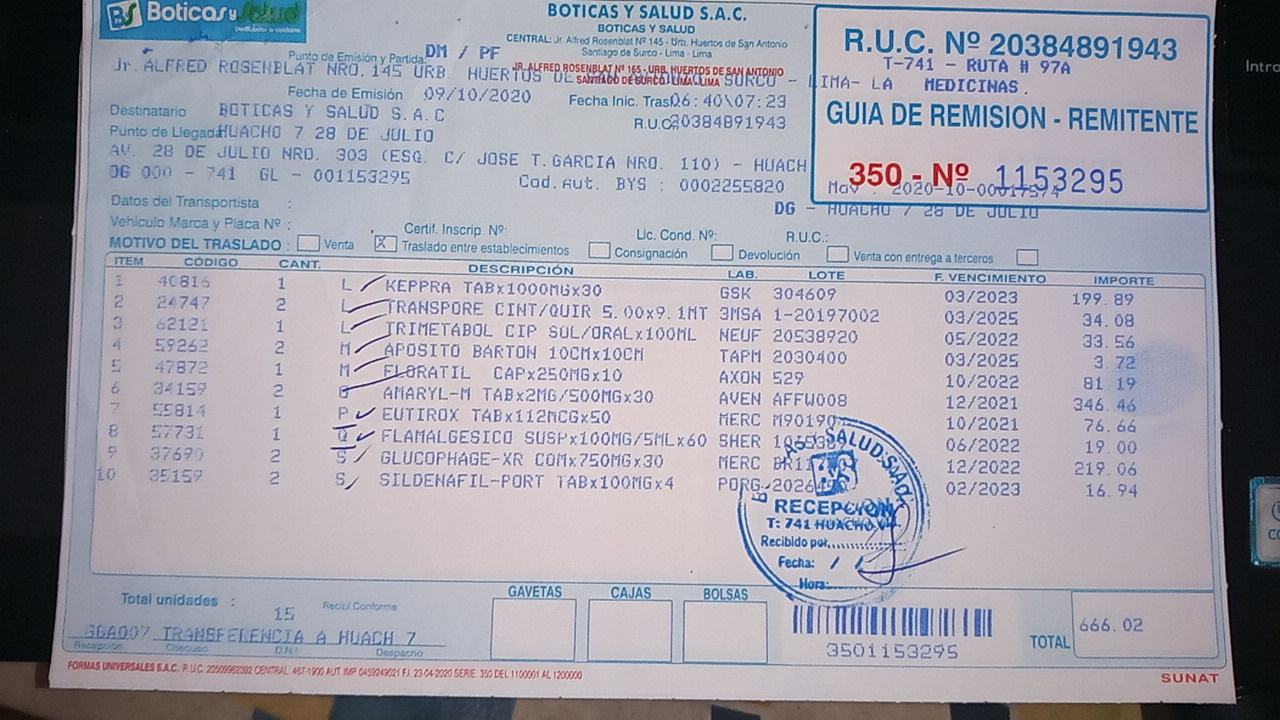 BS Boticas y Salud
BOTICAS Y SALUD S.A.C.
BOTICAS Y SALUD
CENTRAL: Jr. Alfred Rosenblat Nº 145 - Urb. Huertos de San Antonio
Santiago de Surco - Lima - Lima
JR. ALFRED ROSENBLAT Nº 165 - URB. HUERTOS DE SAN ANTONIO
SANTIAGO DE SURCO - LIMA - LIMA
R.U.C. Nº 20384891943
T-741 - RUTA # 97A
MEDICINAS.
GUIA DE REMISION - REMITENTE
350 - Nº 1153295
Punto de Emisión y Partida: DM / PF
Jr. ALFRED ROSENBLAT NRO.145 URB. HUERTOS DE SURCO - LIMA- LA
Fecha de Emisión 09/10/2020 Fecha Inic. Tras. 06:40\07:23
Destinatario BOTICAS Y SALUD S.A.C R.U.C. 20384891943
Punto de Llegada HUACHO 7 28 DE JULIO
AV. 28 DE JULIO NRO. 303 (ESQ. C/ JOSE T.GARCIA NRO. 110) - HUACH
DG 000 - 741 GL - 001153295 Cod.Aut. BYS : 0002255820
DG - HUACHO 7 28 DE JULIO
Datos del Transportista :
Vehículo Marca y Placa Nº : Certif. Inscrip. Nº: Lic. Cond. Nº: R.U.C.:
MOTIVO DEL TRASLADO : Venta X Traslado entre establecimientos Consignación Devolución Venta con entrega a terceros
ITEM CÓDIGO CANT. DESCRIPCIÓN LAB. LOTE F. VENCIMIENTO IMPORTE
1 40816 1 L KEPPRA TABx1000MGx30 GSK 304609 03/2023 199.89
2 24747 2 L TRANSPORE CINT/QUIR 5.00x9.1MT 3MSA 1-20197002 03/2025 34.08
3 62121 1 L TRIMETABOL CIP SOL/ORALx100ML NEUF 20538920 05/2022 33.56
4 59262 2 M APOSITO BARTON 10CMx10CM TAPM 2030400 03/2025 3.72
5 47872 1 M FLORATIL CAPx250MGx10 AXON 529 10/2022 81.19
6 34159 2 G AMARYL-M TABx2MG/500MGx30 AVEN AFFW008 12/2021 346.46
7 55814 1 P EUTIROX TABx112MCGx50 MERC M90190 10/2021 76.66
8 57731 1 Q FLAMALGESICO SUSPx100MG/5MLx60 SHER 06/2022 19.00
9 37690 2 S GLUCOPHAGE-XR COMx750MGx30 MERC 12/2022 219.06
10 35159 2 S SILDENAFIL-PORT TABx100MGx4 PORG 02/2023 16.94
SALUD S.A.C.
RECEPCION
T: 741 HUACHO
Recibido por
Fecha: / /
Hora:
Total unidades : 15 Recibí Conforme
GAVETAS CAJAS BOLSAS
GGA007 TRANSFERENCIA A HUACH 7
Recepción Chequeo D.N.I Despacho
3501153295
TOTAL 666.02
FORMAS UNIVERSALES S.A.C. R.U.C. 20509962392 CENTRAL: 467-1900 AUT. IMP 0459249021 F.I. 23-04-2020 SERIE: 350 DEL 1100001 AL 1200000
SUNAT
Intro